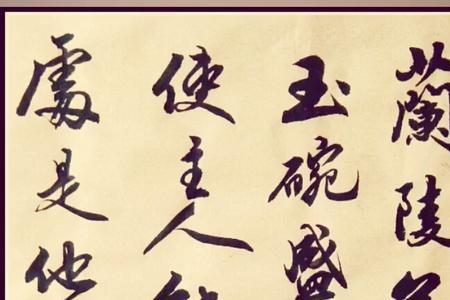 蘭陵
玉碗盛
使主人
處是他